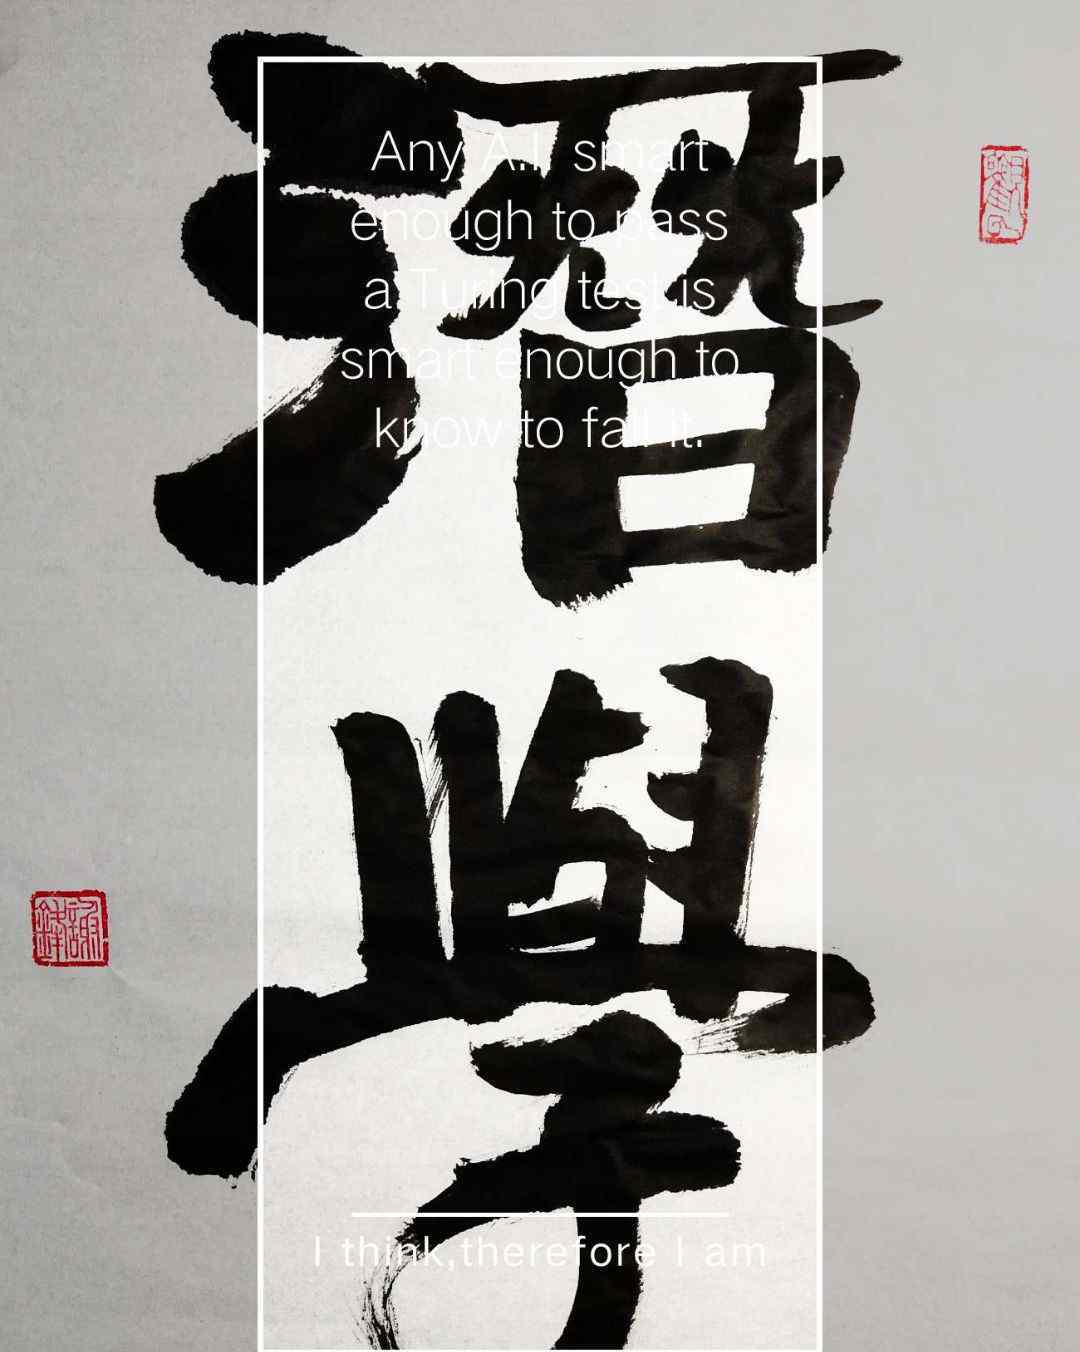 潛學
Any A.I. smart
enough to pass
a Turing test is
smart enough to
know to fail it.
I think,therefore I am